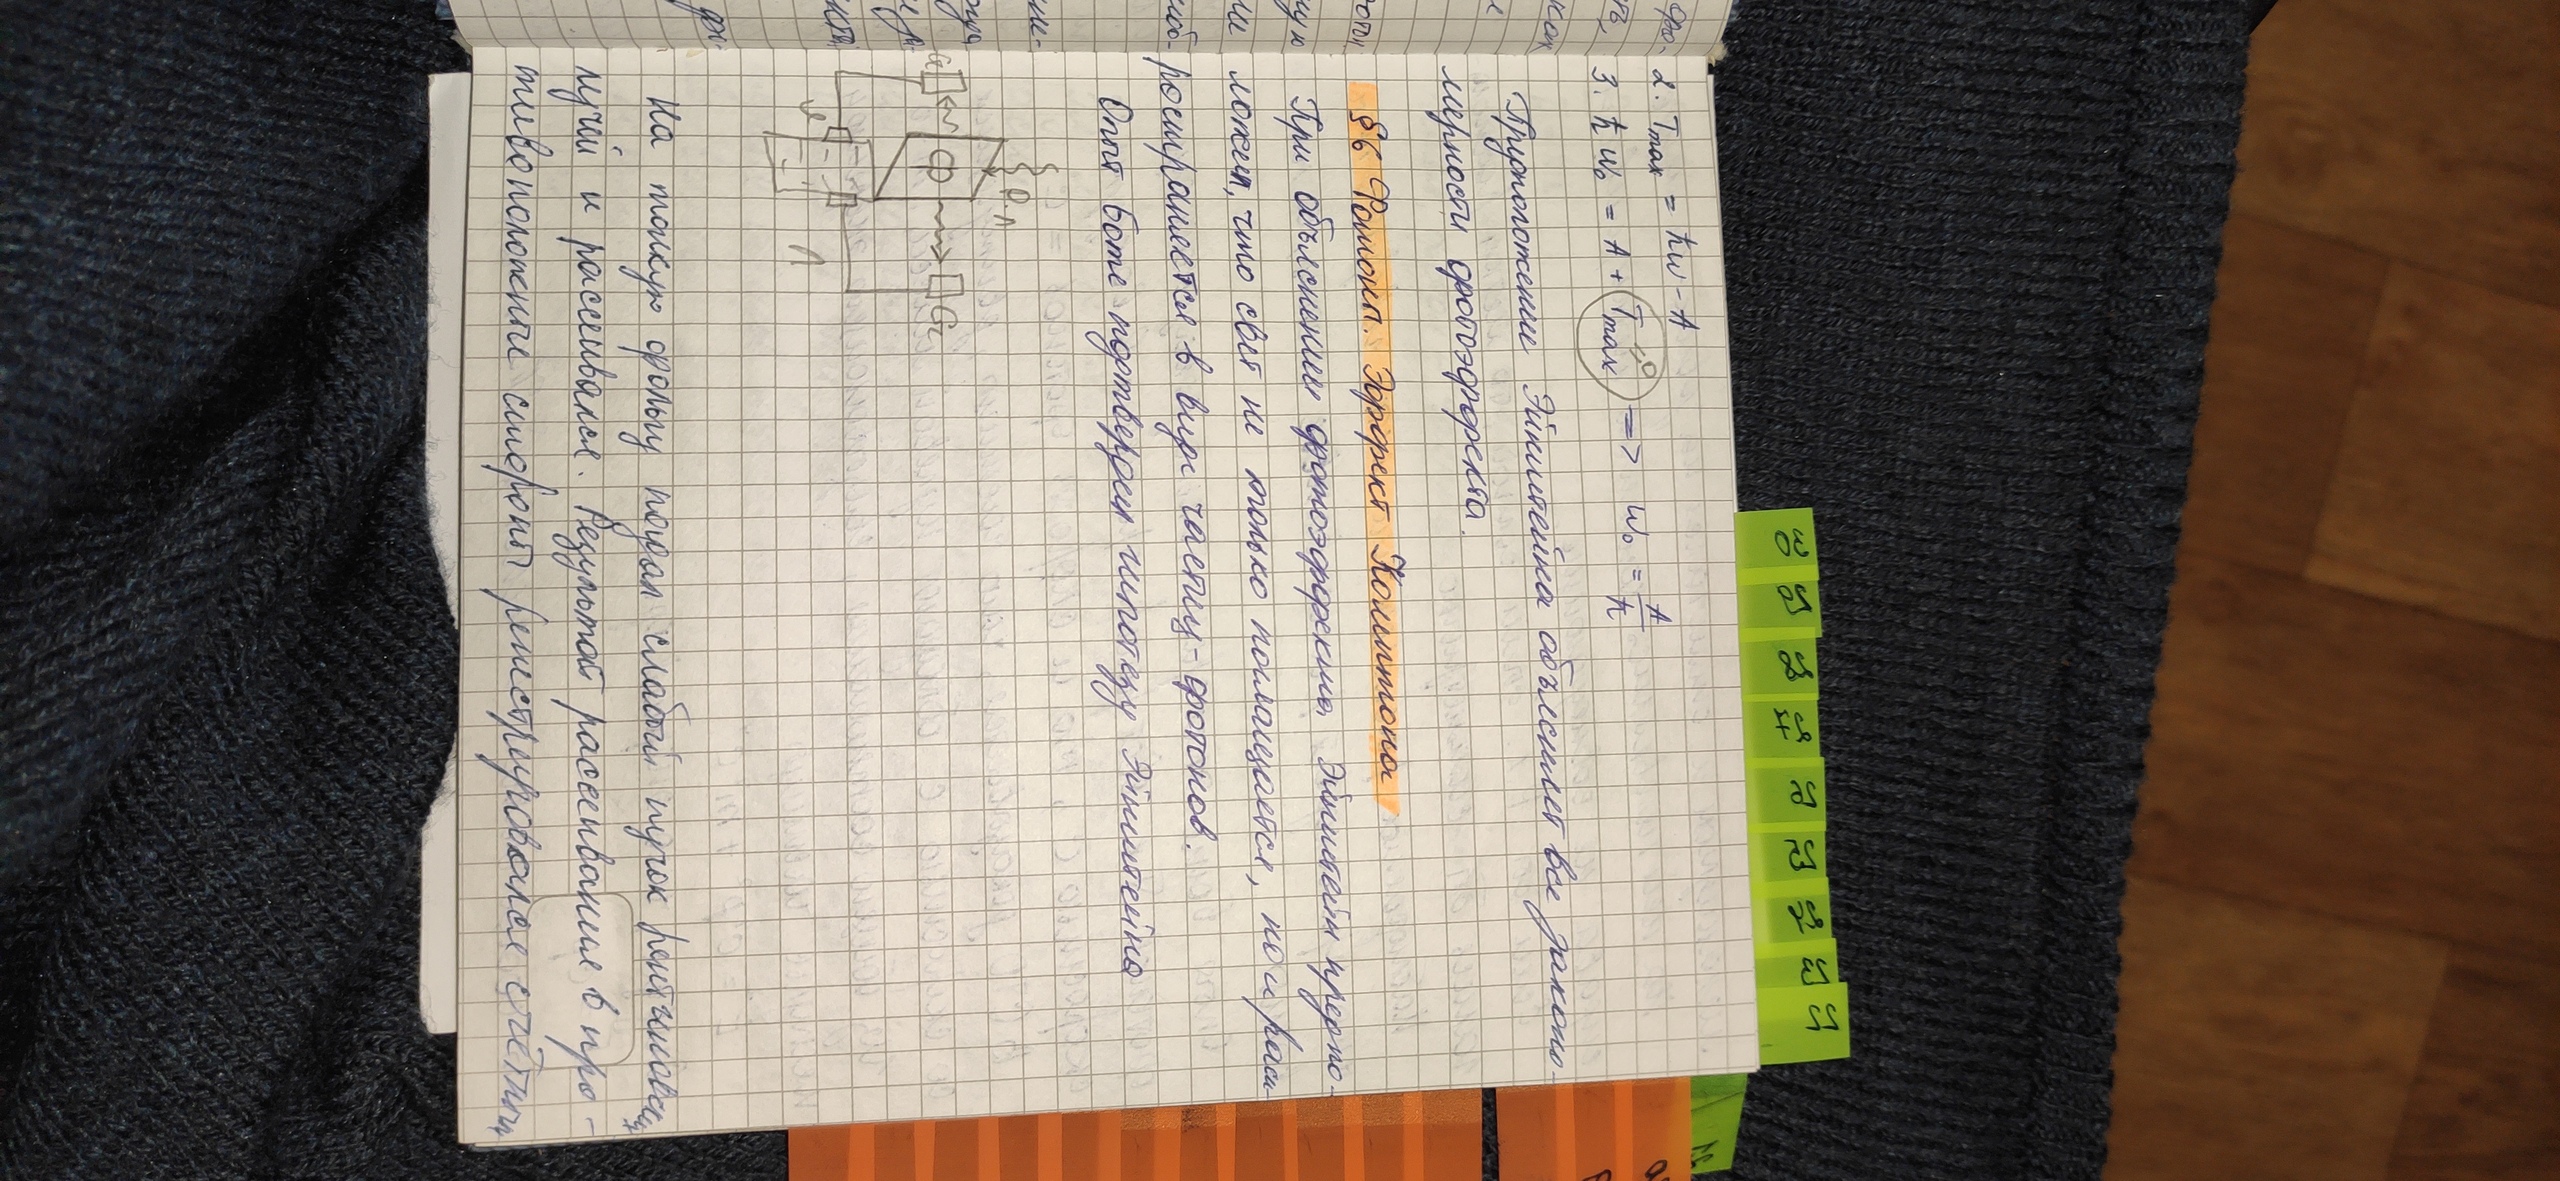 2. Tmax = ħω - A
3. ħω₀ = A + Tmax =0 => ω₀ = A/ħ
Предположение Эйнштейна объясняет все законо-
мерности фотоэффекта.
§6 Фотоны. Эффект Комптона
При объяснении фотоэффекта Эйнштейн предпо-
ложил, что свет не только поглащается, но и расп-
ространяется в виде частиц-фотонов.
Опыт Боте подтвердил гипотезу Эйнштейна
Р.Л
Ф
Л
На тонкую фольгу падал слабый пучок рентгеновских
лучей и рассеивался. Результат рассеивания в про-
тивоположные стороны регистрировался счётным